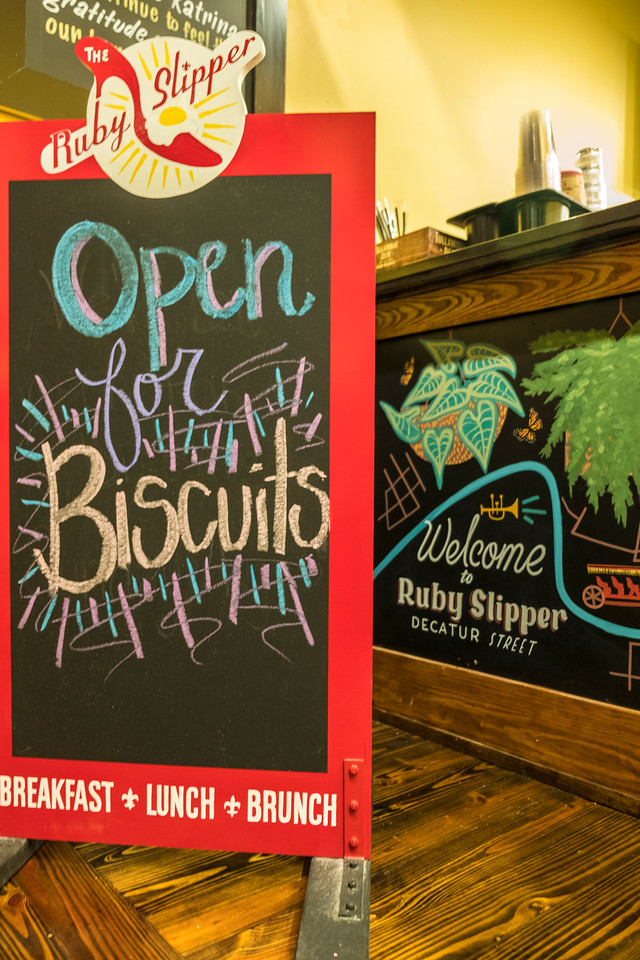 Katrina
continue to feel
gratitude
our
THE
Ruby Slipper
Open
for
Biscuits
BREAKFAST ⚜ LUNCH ⚜ BRUNCH
Welcome
to
Ruby Slipper
DECATUR STREET